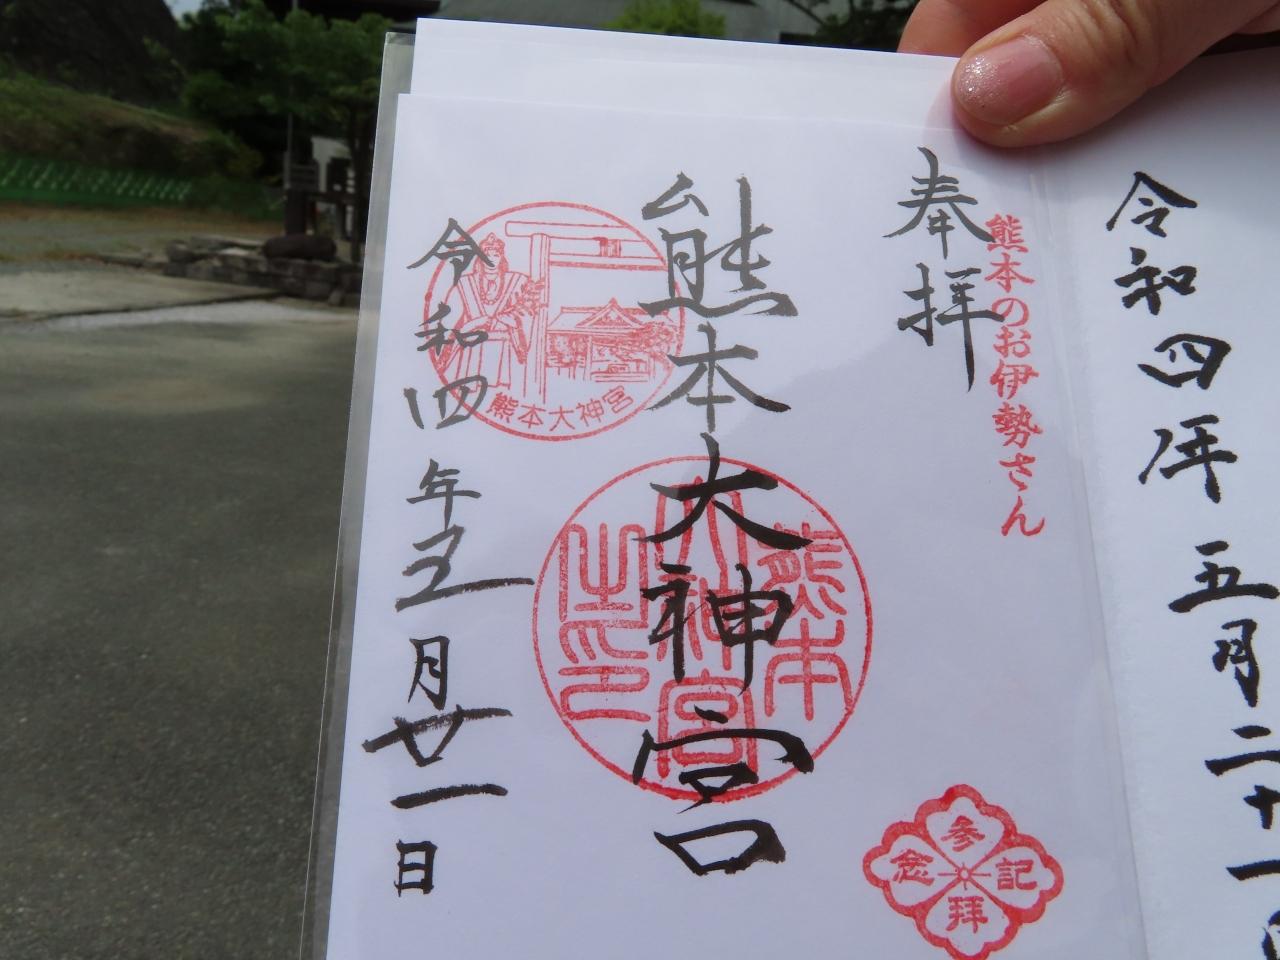 令和四年五月二十一
熊本のお伊勢さん
奉拝
熊本大神宮
令和四年五月廿一日
熊本大神宮
熊本
大神宮
之印
参拝記念